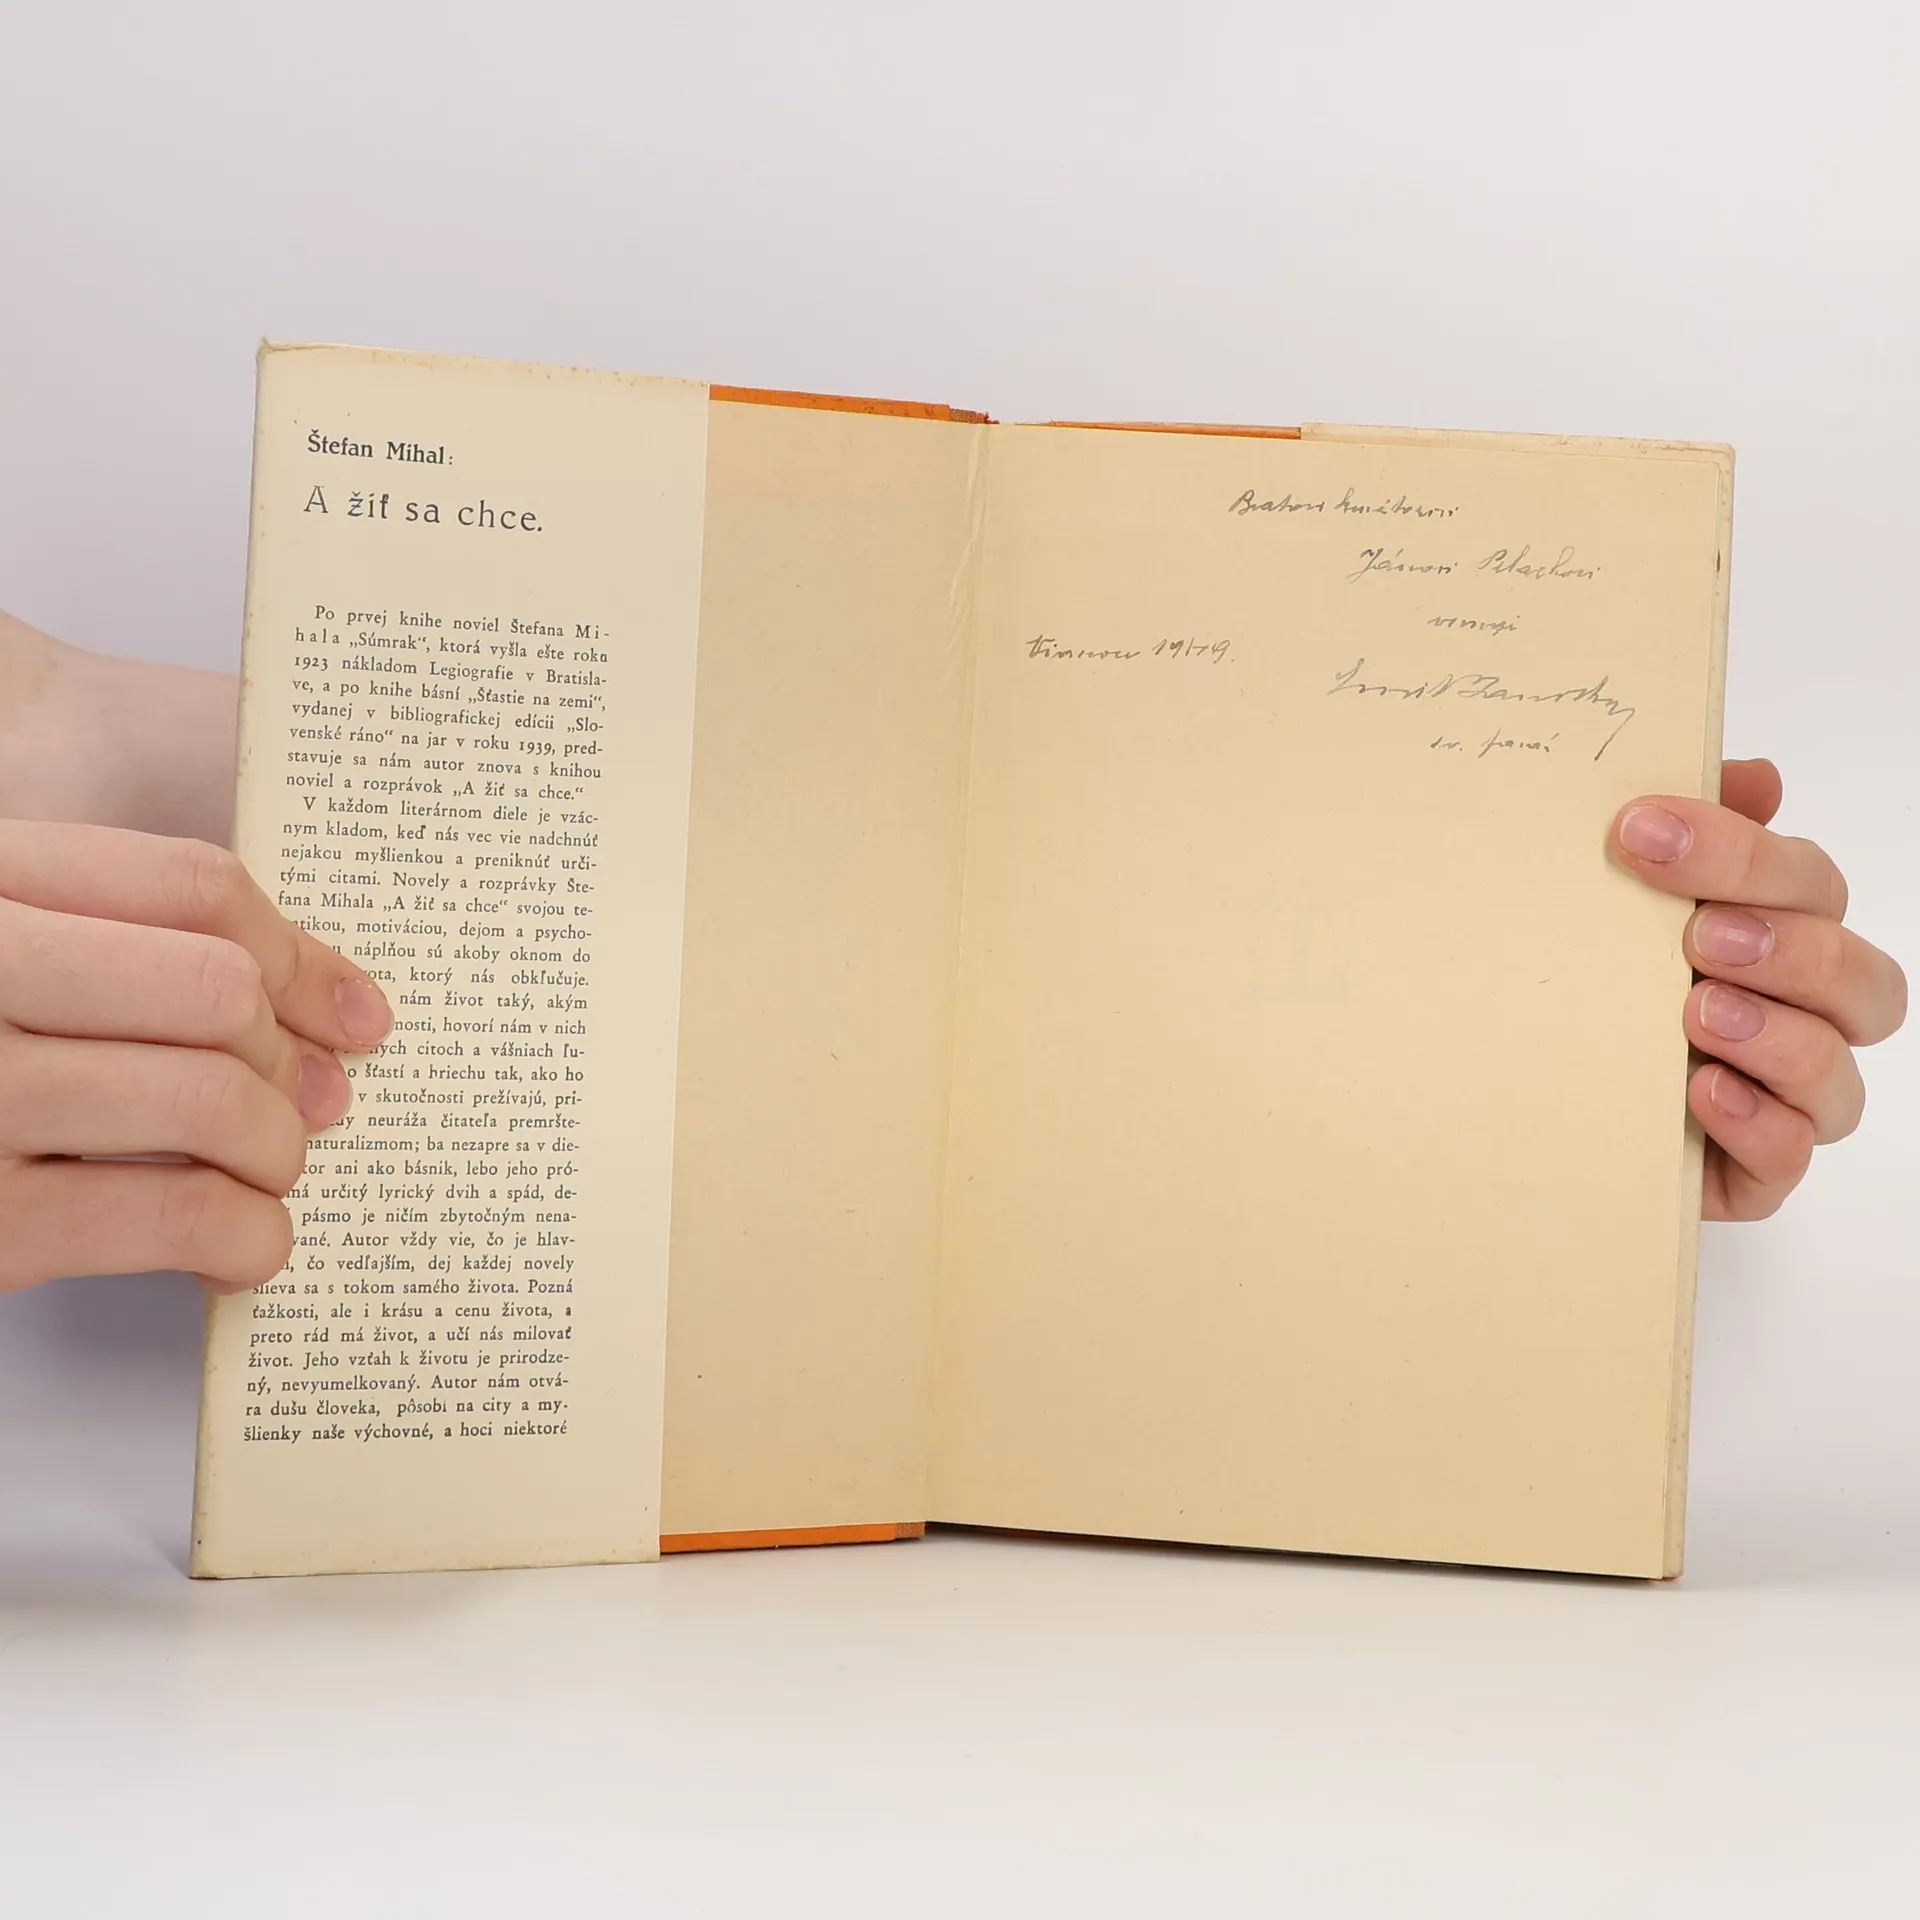 Štefan Mihal:
A žiť sa chce.
Po prvej knihe noviel Štefana Mi-
hala „Súmrak“, ktorá vyšla ešte roku
1923 nákladom Legiografie v Bratisla-
ve, a po knihe básní „Šťastie na zemi“,
vydanej v bibliografickej edícii „Slo-
venské ráno“ na jar v roku 1939, pred-
stavuje sa nám autor znova s knihou
noviel a rozprávok „A žiť sa chce.“
V každom literárnom diele je vzác-
nym kladom, keď nás vec vie nadchnúť
nejakou myšlienkou a preniknúť urči-
tými citami. Novely a rozprávky Šte-
fana Mihala „A žiť sa chce“ svojou te-
atikou, motiváciou, dejom a psycho-
u náplňou sú akoby oknom do
ota, ktorý nás obkľučuje.
nám život taký, akým
nosti, hovorí nám v nich
ných citoch a vášniach ľu-
o šťastí a hriechu tak, ako ho
v skutočnosti prežívajú, pri-
dy neuráža čitateľa premršte-
naturalizmom; ba nezapre sa v die-
tor ani ako básnik, lebo jeho pró-
má určitý lyrický dvih a spád, de-
pásmo je ničím zbytočným nena-
vané. Autor vždy vie, čo je hlav-
, čo vedľajším, dej každej novely
slieva sa s tokom samého života. Pozná
ťažkosti, ale i krásu a cenu života, a
preto rád má život, a učí nás milovať
život. Jeho vzťah k životu je prirodze-
ný, nevyumelkovaný. Autor nám otvá-
ra dušu človeka, pôsobí na city a my-
šlienky naše výchovné, a hoci niektoré
Bratovi
Jánovi
venuje
1949.